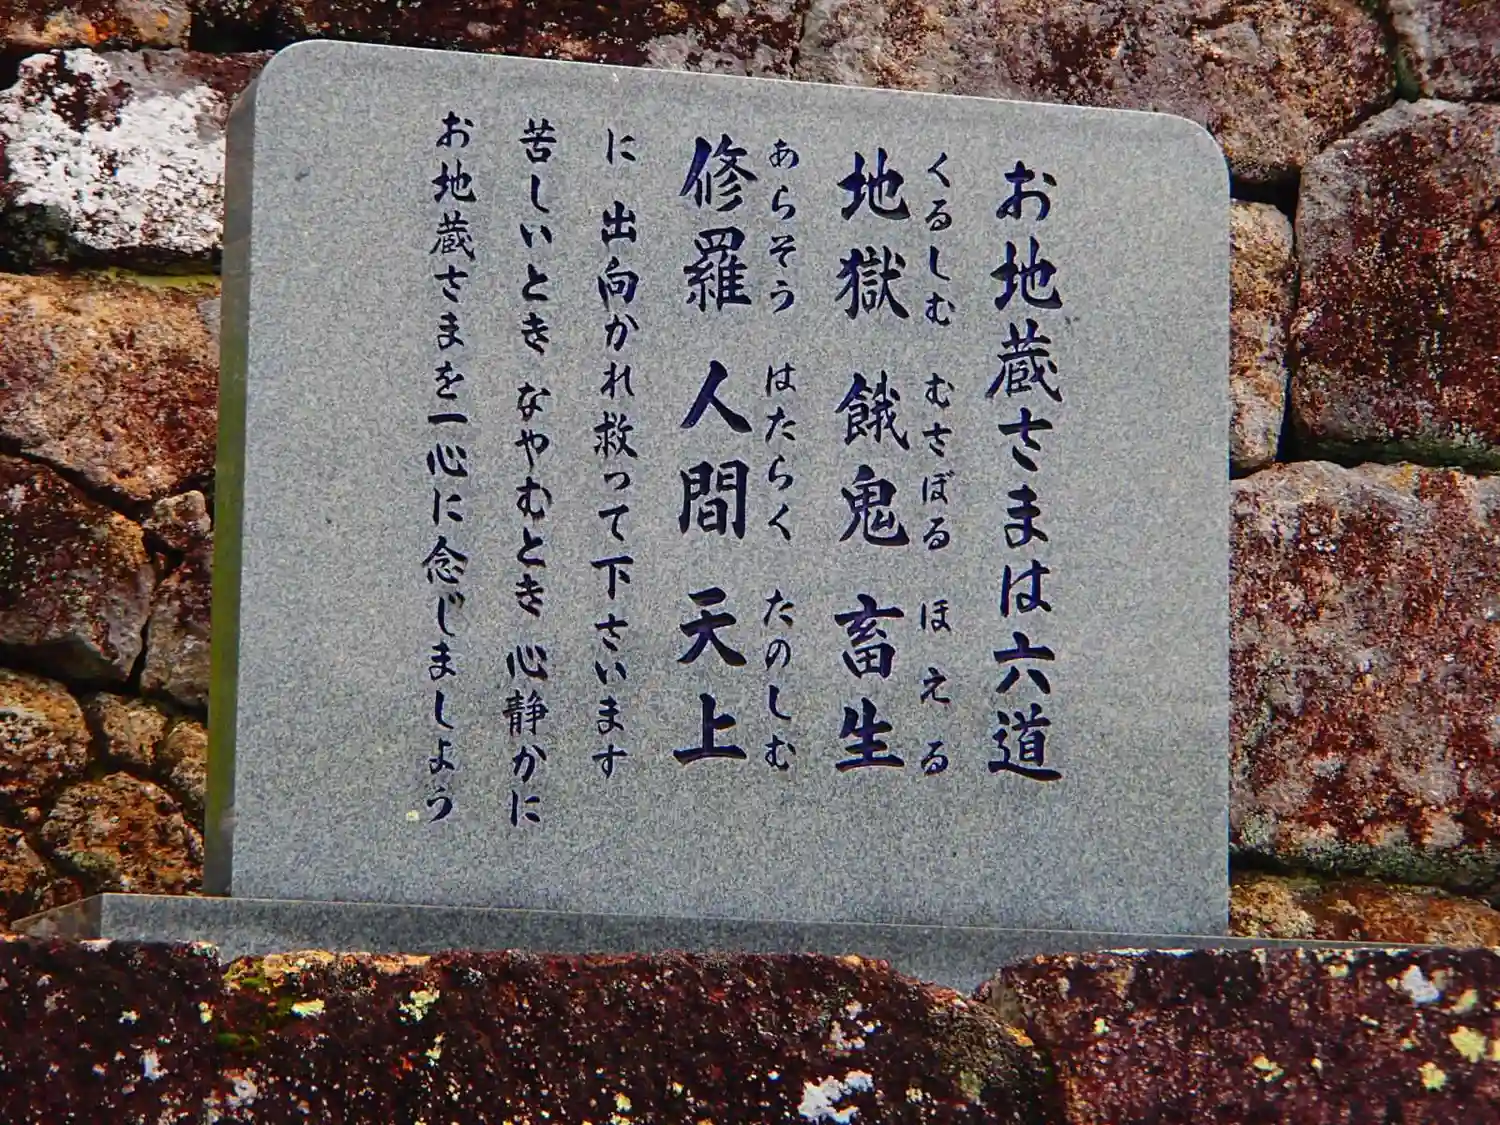 お地蔵さまは六道
くるしむ むさぼる ほえる
地獄 餓鬼 畜生
あらそう はたらく たのしむ
修羅 人間 天上
に 出向かれ救って下さいます
苦しいとき なやむとき 心静かに
お地蔵さまを一心に念じましょう